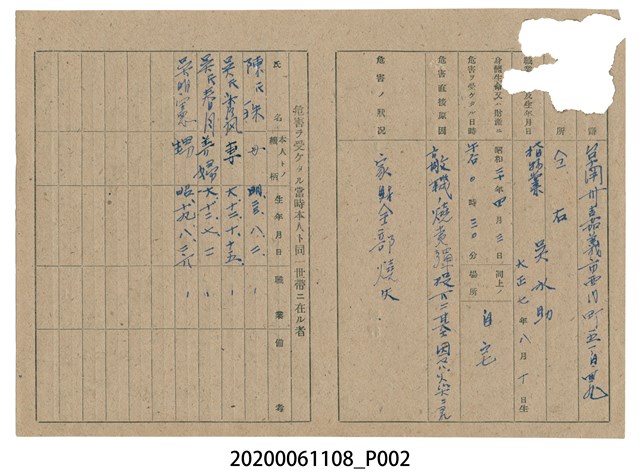 籍 台南州嘉義市西門町五ノ一四九
所 仝右
職業 及生年月日 指物業 吳水助 大正七年八月 日生
身體生命又ハ財産ニ危害ヲ受ケタル日時 昭和二十年四月三日 午后0時三0分 場所 同上ノ 自宅
危害直接原因 敵機ノ燒夷彈投下ニ基因
危害ノ狀況 家財全部燒失
危害ヲ受ケタル當時本人ト同一世帶ニ在ル者
氏名 本人トノ續柄 生年月日 職業 備考
陳氏 珠 母 明
吳氏 妻 大、十二、十、十五、
吳氏春月 大、十三、七、二
吳明憲 甥 昭、十九、八、
20200061108_P002